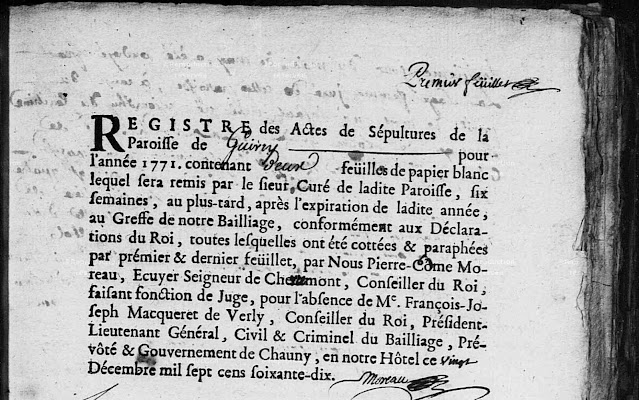 Premier feüillet
REGISTRE des Actes de Sépultures de la
Paroisse de Guivry pour
l'année 1771. contenant deux feüilles de papier blanc
lequel sera remis par le sieur Curé de ladite Paroisse, six
semaines, au plus-tard, après l'expiration de ladite année,
au Greffe de notre Bailliage, conformément aux Déclara-
tions du Roi, toutes lesquelles ont été cottées & paraphées
par prémier & dernier feüillet, par Nous Pierre-Côme Mo-
reau, Ecuyer Seigneur de Conseiller du Roi,
faisant fonction de Juge, pour l'absence de Me. François-Jo-
seph Macqueret de Verly, Conseiller du Roi, Président-
Lieutenant Général, Civil & Criminel du Bailliage, Pré-
vôté & Gouvernement de Chauny, en notre Hôtel ce vingt
Décembre mil sept cens soixante-dix. Moreau